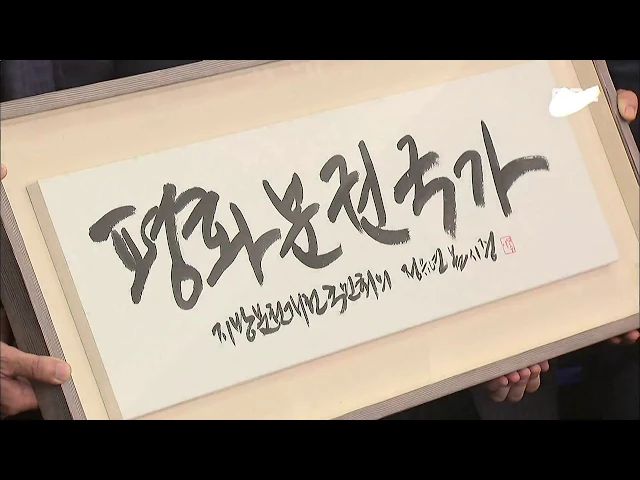 평화분권국가
지방분권개헌국민회의